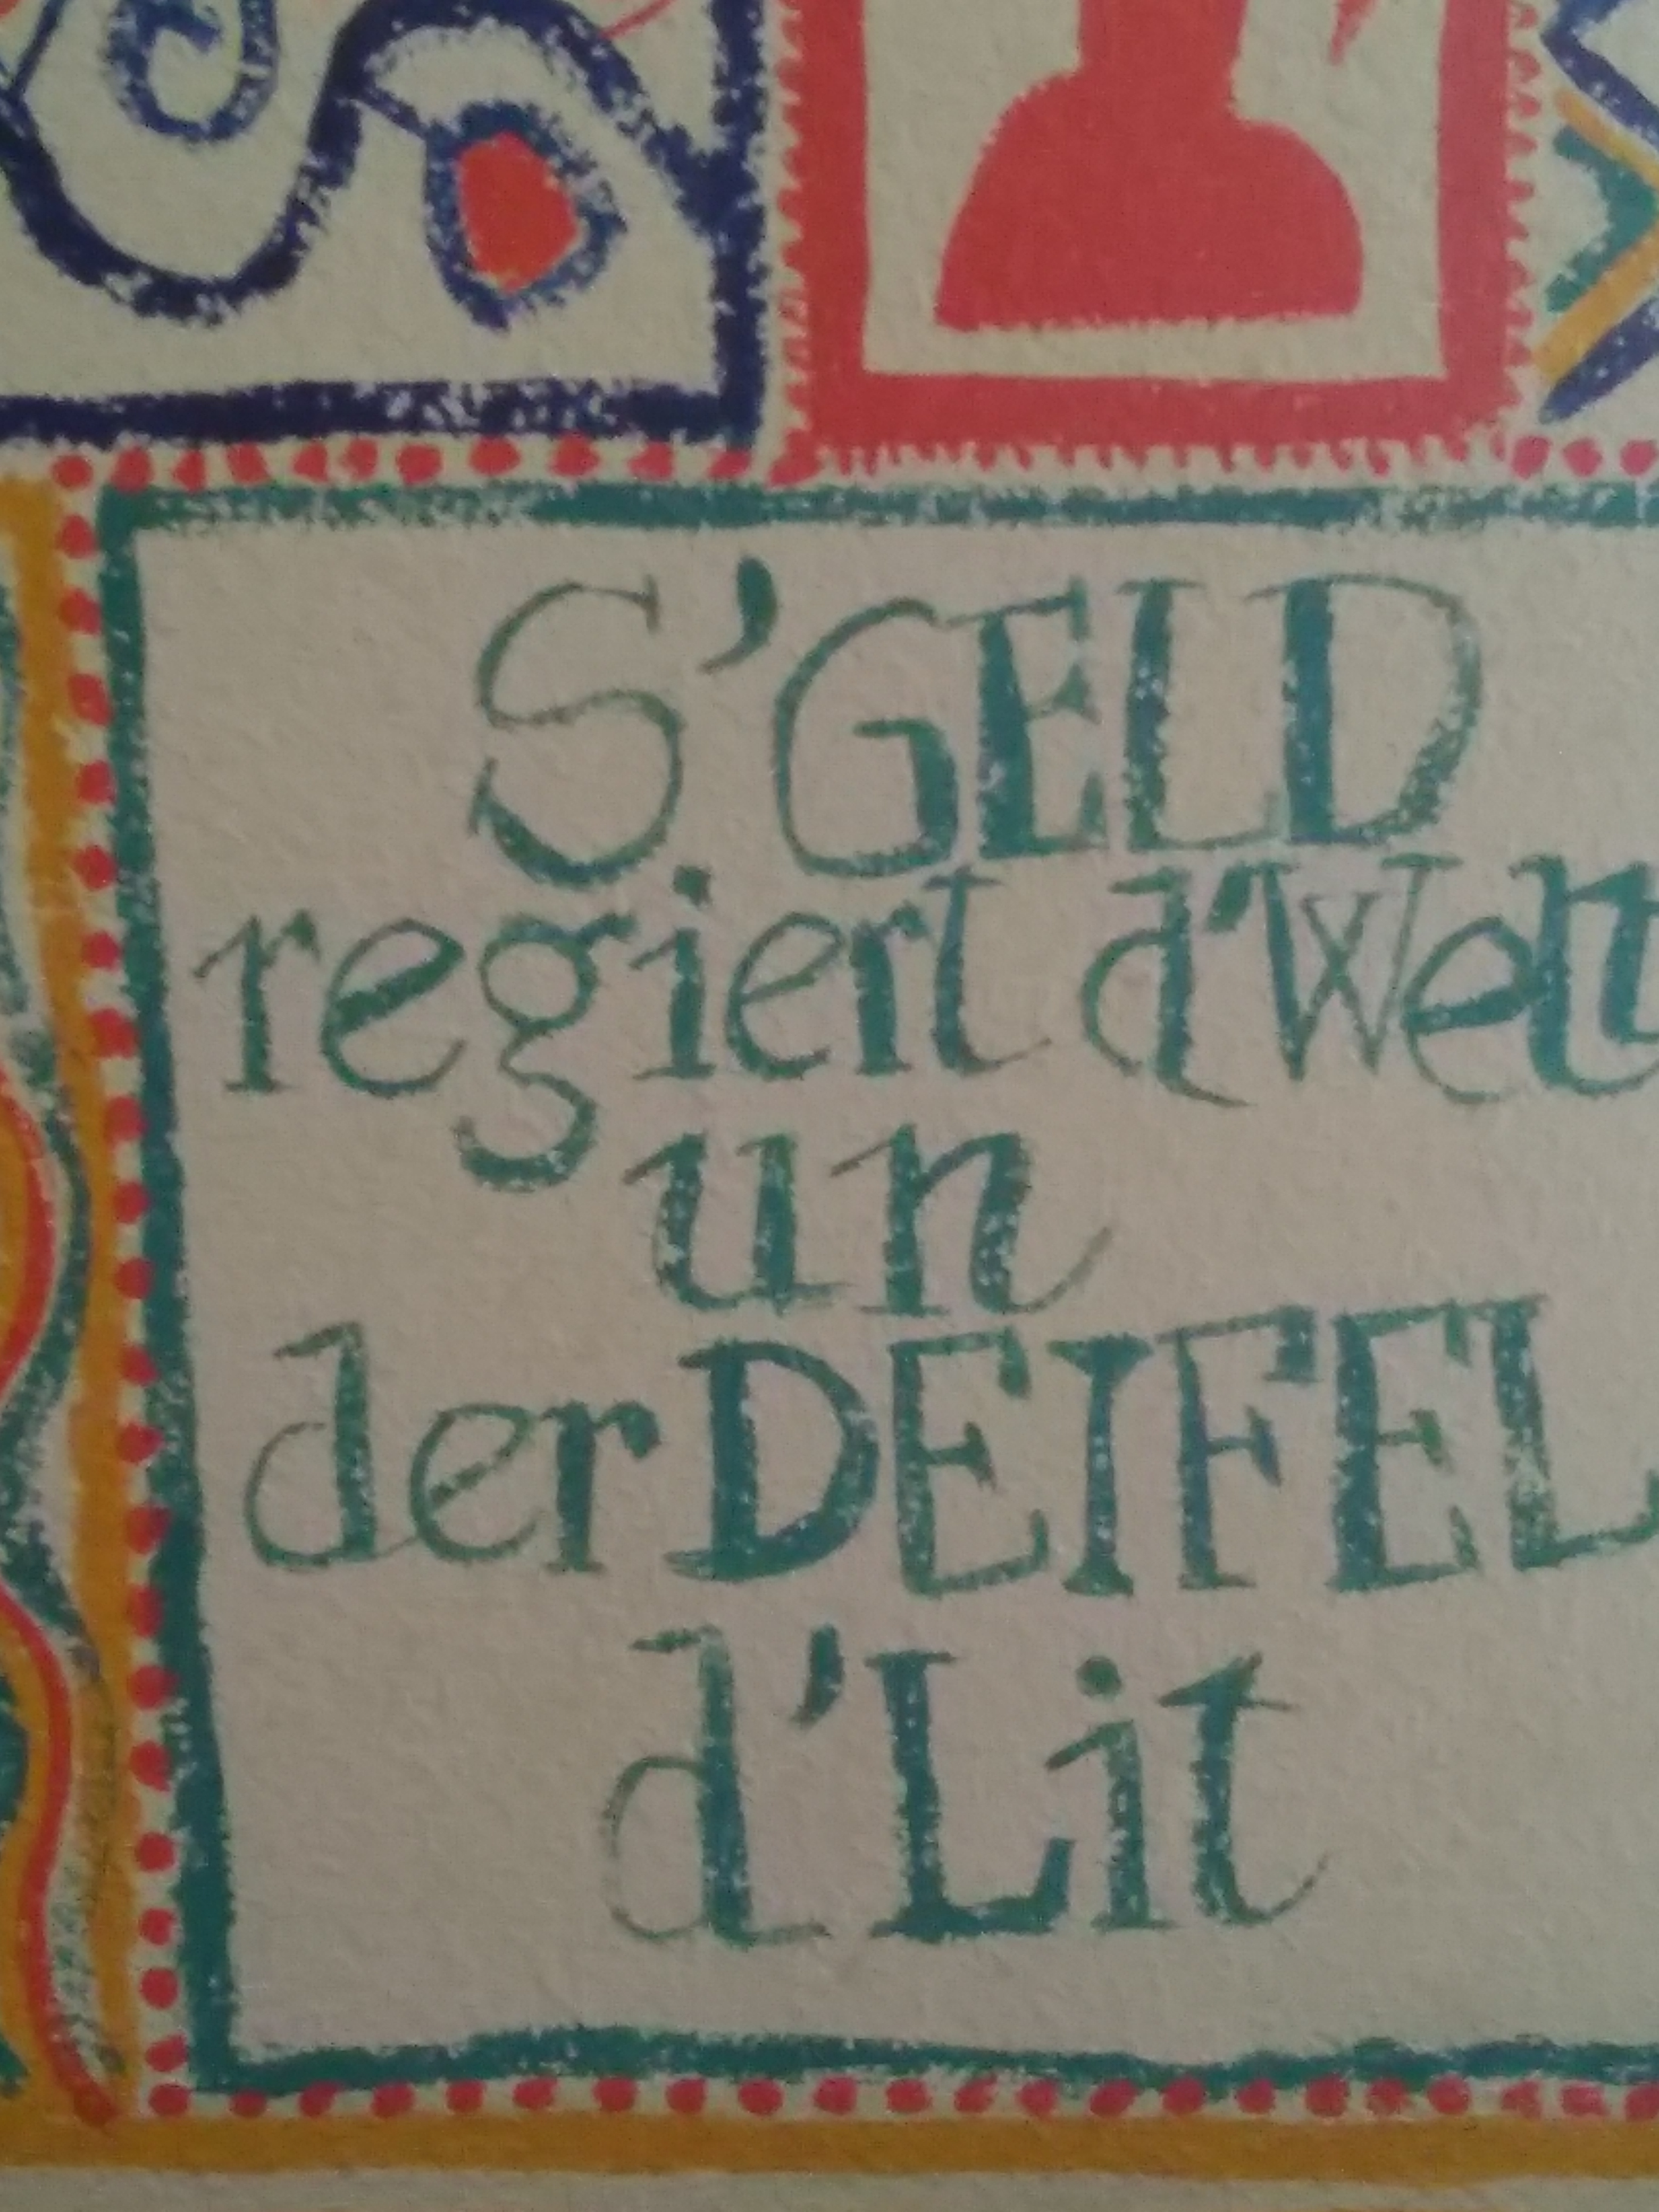 S'GELD
regiert d'Welt
un
der DEIFEL
d'Lit